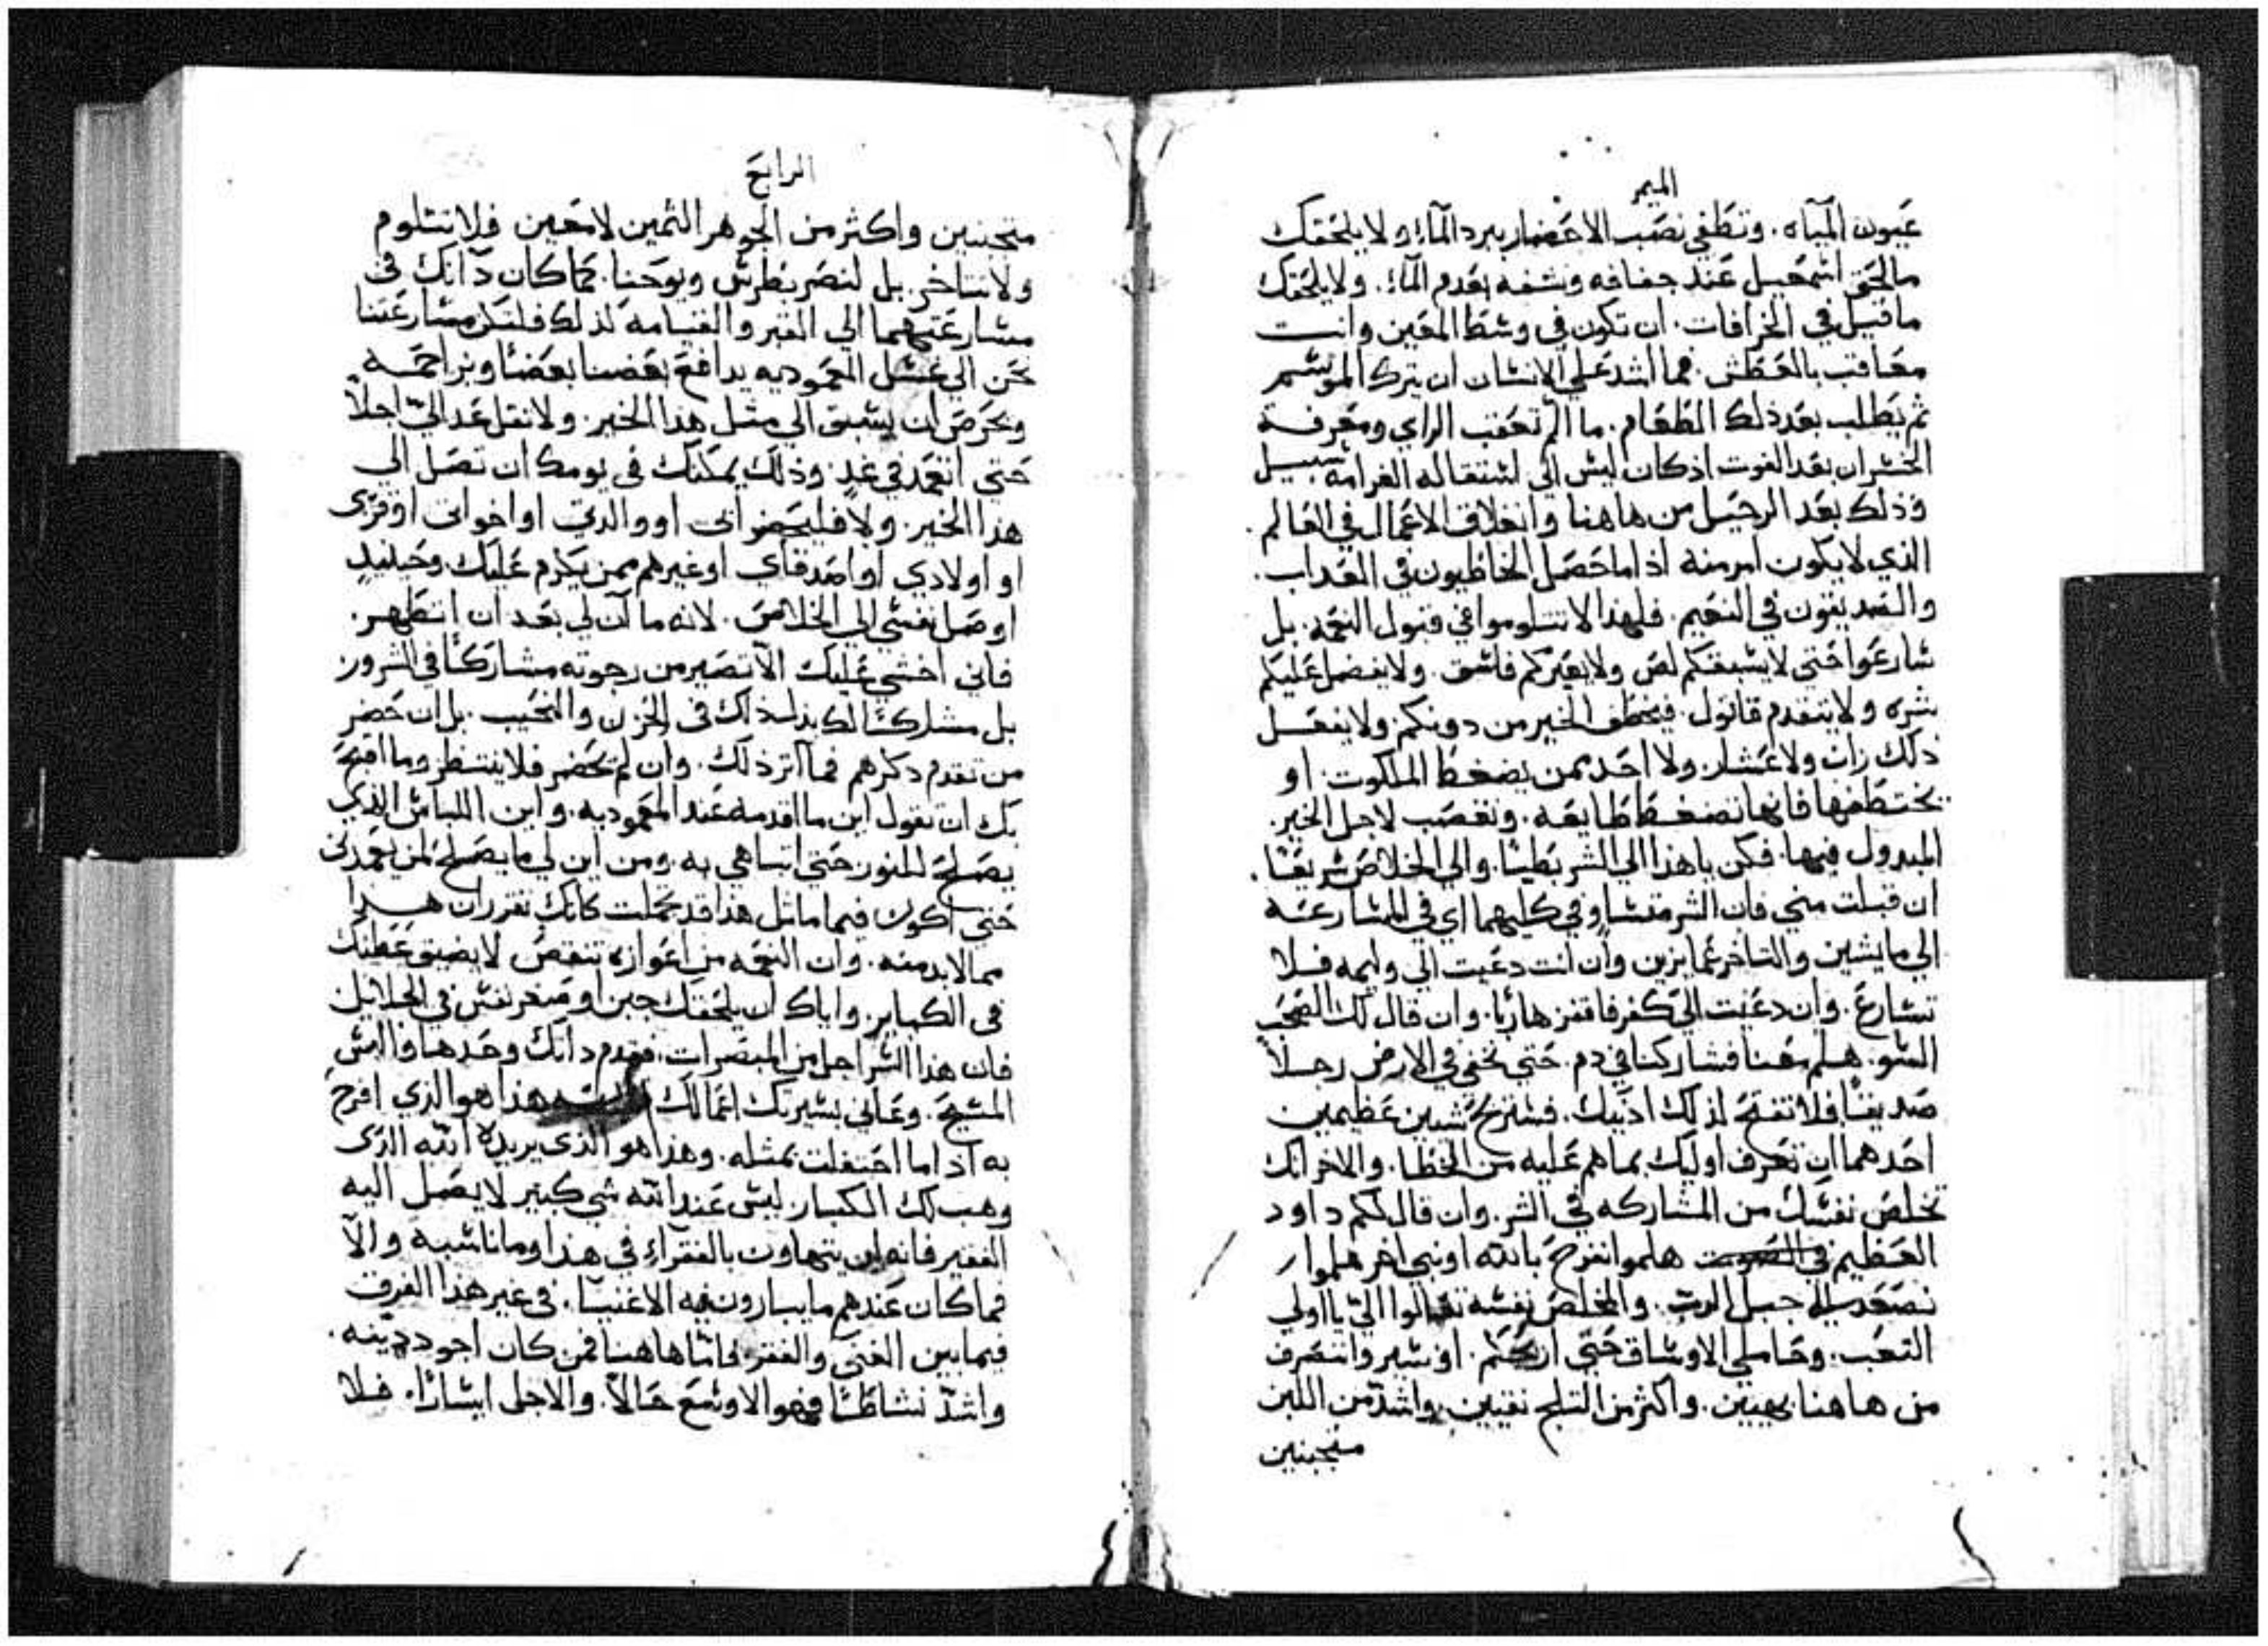 الميمر
عيون المياه. وتطفي نصب الاحضار ببرد الماء ولا يلحقك
مالحق اسمعيل عند جفافه ونشفه بعدم الماء. ولا يلحقك
ماقيل في الخرافات. ان تكون في وسط المعين وانت
معاقب بالعطش. فما اشد علي الانسان ان يترك الموسم
ثم يطلب بعد ذلك الطعام. ما الم تعقب الراي ومعرفة
الخسران بعد الفوت اذ كان ليس الي اشتقاله الغرامه سبيل
وذلك بعد الرحيل من هاهنا وانغلاق الاعمال في العالم.
الذي لا يكون امر منه اذا ما حصل الخاطيون في العذاب.
والصديقون في النعيم. فلهذا لا تتلوموا في قبول النعمه. بل
سارعوا حتي لا يسبقكم لص ولا يعبركم فاسق. ولا يفضل عليكم
شره ولا يتقدم قاتول. فيخطف الخير من دونكم ولا يفعل
ذلك زان ولا عشار. ولا احد ممن يضغط الملكوت. او
يختطفها فانها تضغط طايعه. وتغصب لاجل الخير.
المبدول فيها. فكن ياهذا الي الشر بطيئا. والي الخلاص سريعا.
ان قبلت مني فان الشر متساو في كليهما اي في المسارعه
الي مايشين والتاخر عما يزين وان انت دعيت الي وليمه فلا
تسارع. وان دعيت الي كفر فاقفز هاربا. وان قال لك الصحب
السو. هلم معنا فشاركنا في دم. حتي نخفي في الارض رجلا
صديقا فلا تفتح لذلك اذنيك. فستربح شيين عظيمين
احدهما ان تعرف اوليك بما هم عليه من الخطا. والاخر انك
تخلص نفسك من المشاركه في الشر. وان قال لكم داود
العظيم في هلموا نفرح بالله او نبي اخر هلموا
نصعد الي جبل الرب. والمخلص نفسه تعالوا الي يااولي
التعب. وحاملي الاوساق حتي اريحكم. او نسير وانتصرف
من هاهنا بهيين. واكثر من الثلج نقيين. واشد من اللبن
متجبنين
الرابع
متجبنين واكثر من الجوهر الثمين لامعين فلا نتلوم
ولا نتاخر. بل لنصر بطرس ويوحنا. كما كان داناك في
مسارعتهما الي القبر والقيامه لذلك فلتكن مسارعتنا
نحن الي غسل المعموديه يدافع بعضنا بعضا ويزاحمه
ويحرص ان يسبق الي مثل هذا الخير. ولا تقل غدا الي اجلا
حتي اتعمد في غد. وذلك يمكنك في يومك ان تصل الي
هذا الخير. ولا فليحضر ابي او والدي او اخواتي او قربي
او اولادي او اصدقاي او غيرهم ممن يكرم عليك وحينيد
اوصل نفسي الي الخلاص. لانه ما آن لي بعد ان اتطهر.
فاني اخشي عليك الا تصير من رجوته مشاركا في السرور
بل مشاركا لك بدل ذلك في الحزن والنحيب. بل ان حضر
من تقدم ذكرهم فما اثر ذلك. وان لم يحضر فلا ينتظر وما اقبح
بك ان تقول اين ما اقدمه عند المعموديه. واين اللباس الذي
يصلح للنور حتي اتباهي به ومن اين لي ما يصلح لمن يعمدني
حتي اكون فيما ماثل هذا قد تجملت كانك تقرر ان هذا
مما لا بد منه. وان النعمه من اعوازه تنتقص لا يضيق عطنك
في الكباير. واياك ان يلحقك جبن او صغر نفس في الجلايل
فان هذا السر اجل من المبصرات. فقدم داتك وحدها والبس
المسيح. وعالني بسيرتك اعمالك هذا هو الذي افرح
به اذا ما احتفلت بمثله. وهذا هو الذي يريده الله الذي
وهب لك الكبار. ليس عند الله شي كبير لا يصل اليه
الفقير فانه ان يتهاون بالفقراء في هذا وما ناسبه والا
فما كان عندهم مايبارون فيه الاغنيا. في غير هذا الفرق
فيما بين الغني والفقر فاما هاهنا فمن كان اجود دينه.
واشد نشاطا فهو الاوسع حالا. والاجل ايسارا. فلا